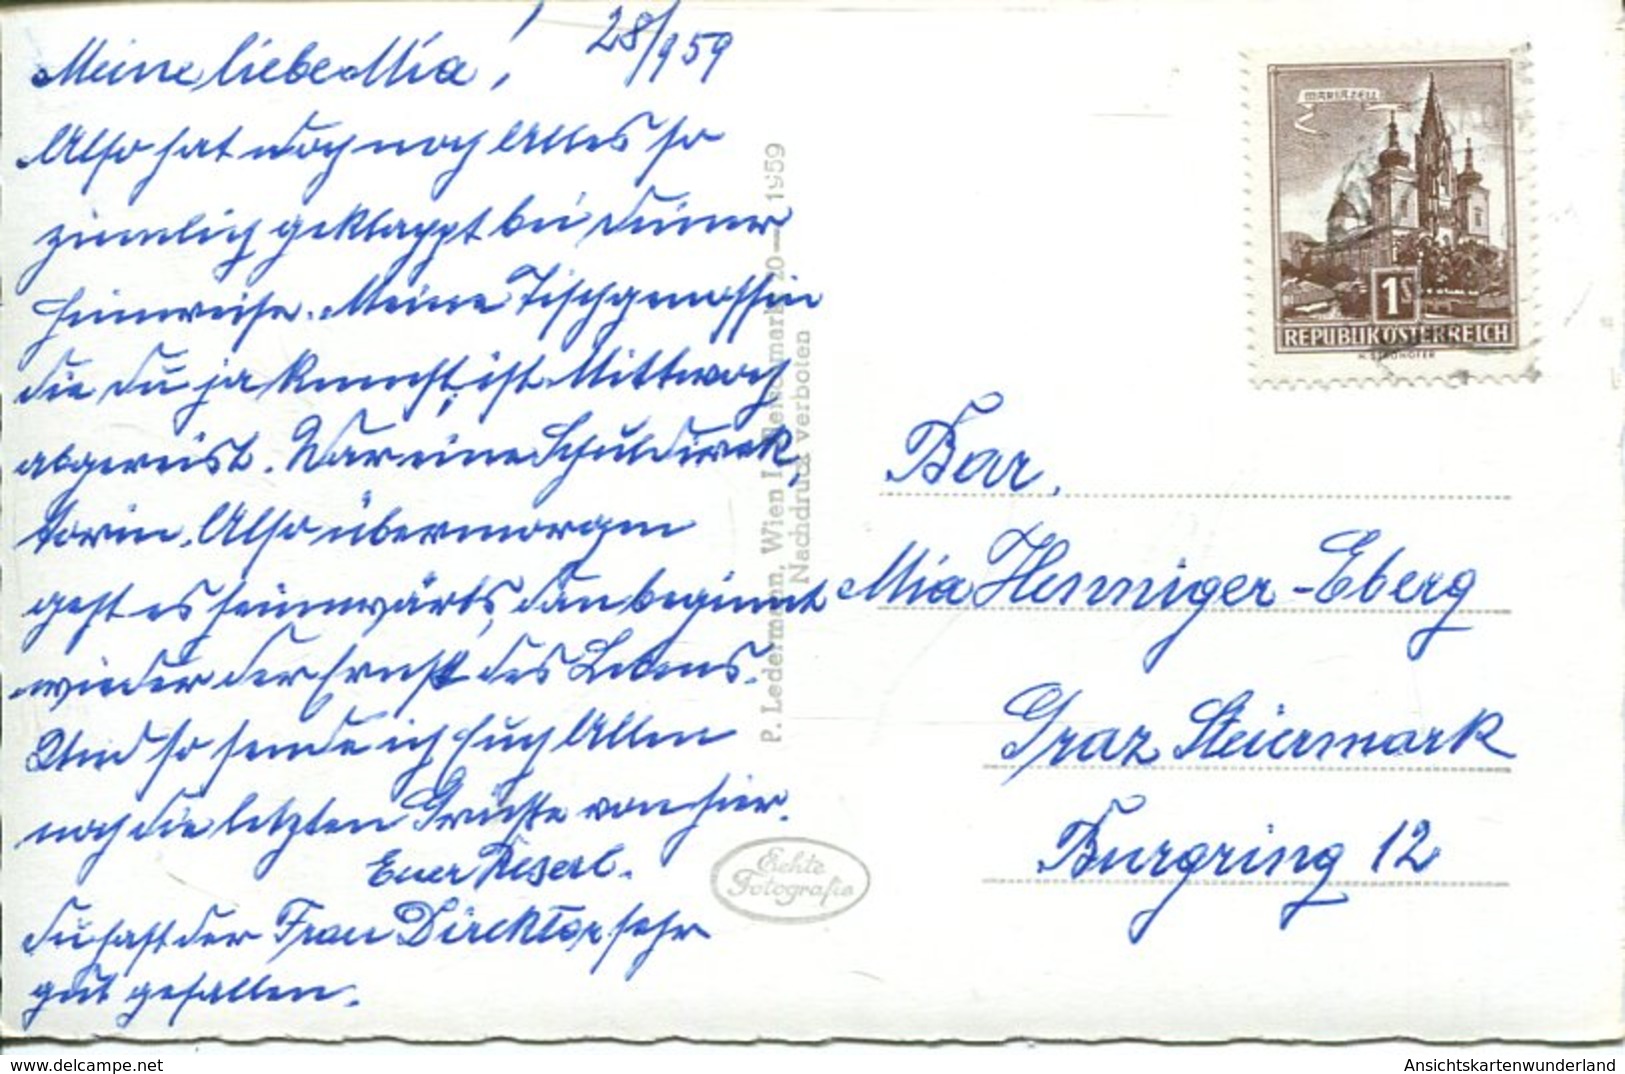 28/9 59
Meine liebe Mia!
Also hat doch noch Alles so
ziemlich geklappt bei Deiner
Heimreise. Meine Tischgenossin
die Du ja kennst, ist Mittwoch
abgereist. War eine Schuldirek
torin. Also übermorgen
geht es heimwärts, dan beginnt
wieder der Ernst des Lebens.
Und so sende ich Euch Allen
noch die letzten Grüsse von hier.
Euer Reserl.
Du hast der Frau Direktor sehr
gut gefallen.
P. Ledermann, Wien I 1959
Nachdruck verboten
Echte
Fotografie
MARIAZELL
1S
REPUBLIK ÖSTERREICH
Bar.
Mia Henniger-Eberg
Graz Steiermark
Burgring 12
https://www.delcampe.net
AnsichtskartenWunderland